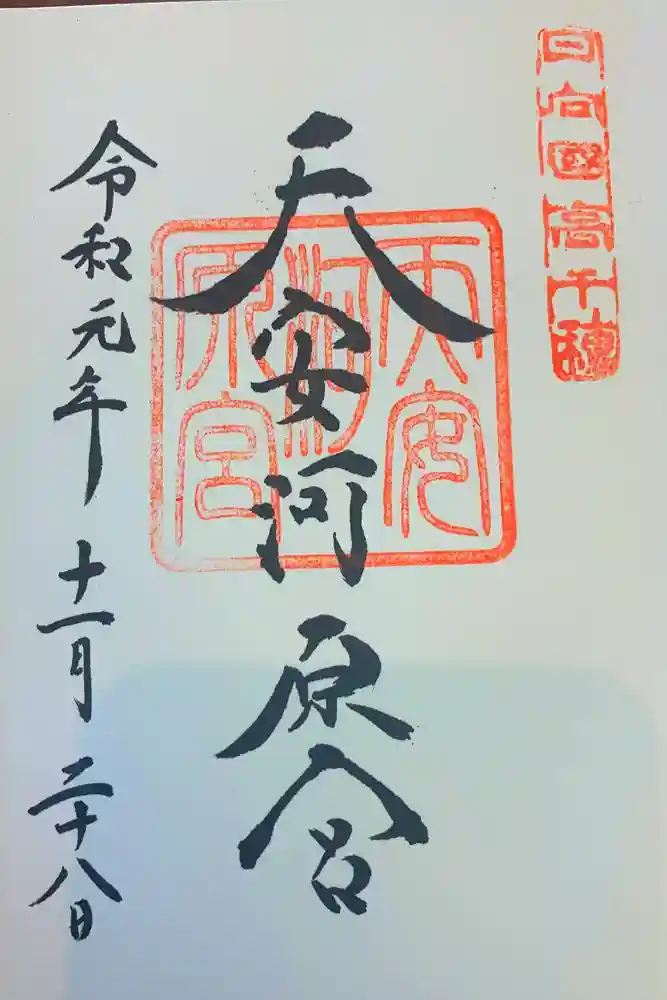 日向國高千穂
天安河原宮
天安河原宮
令和元年 十一月 二十八日